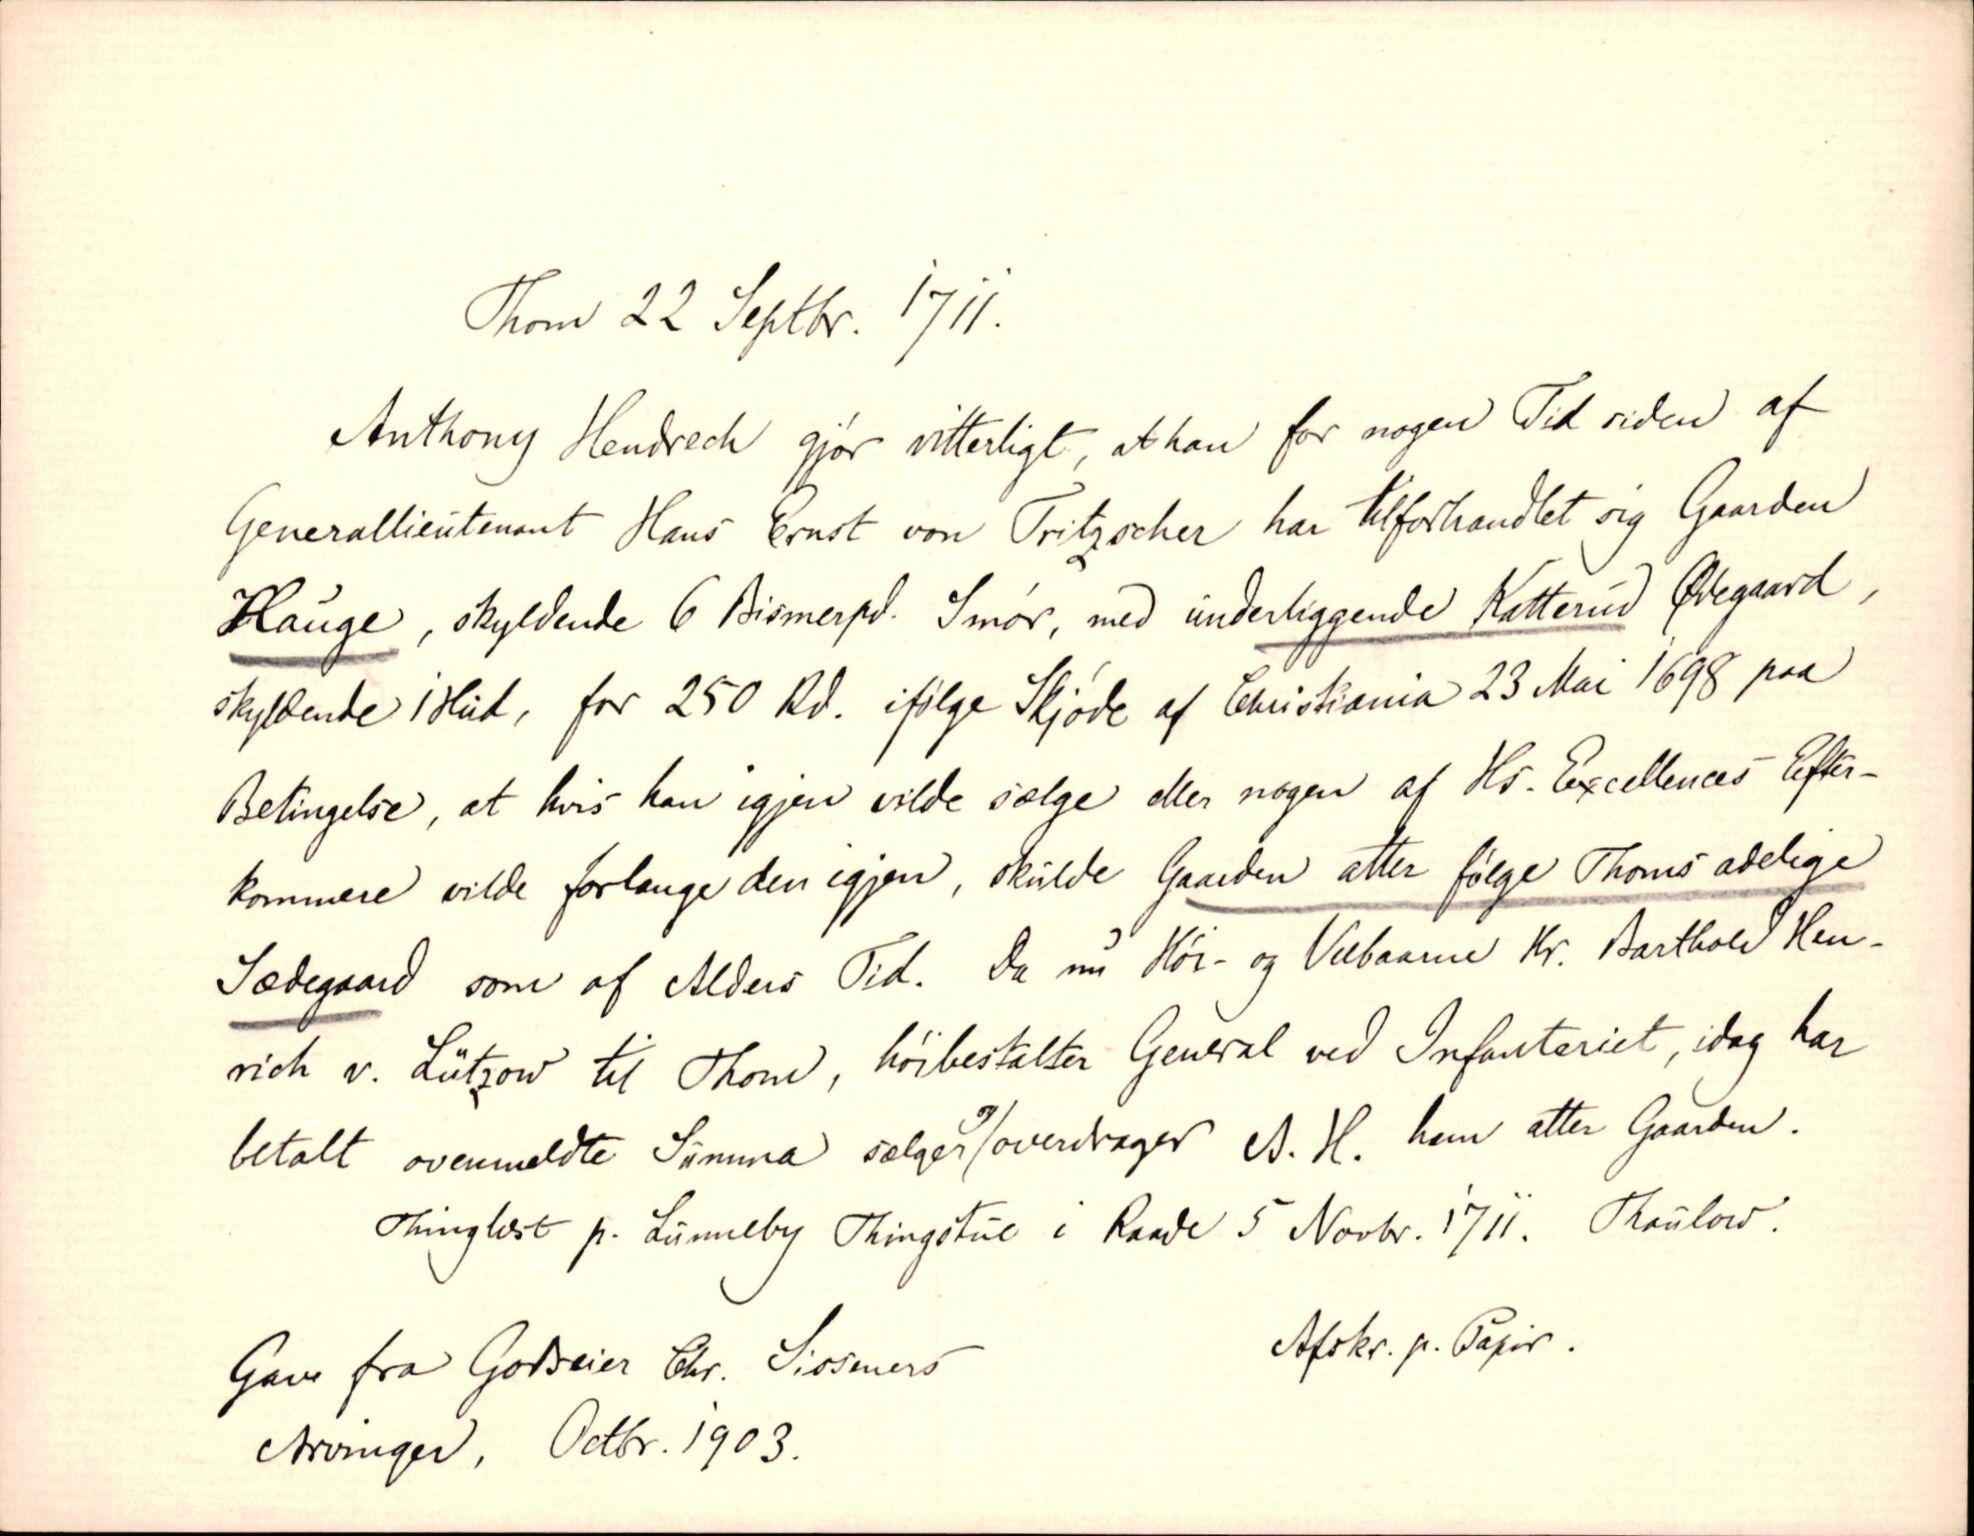 Thom 22 Septbr. 1711.
Anthony Hendrech gjør vitterligt, at han for nogen Tid siden af
Generallieutenant Hans Ernst von Tritzscher har tilforhandlet sig Gaarden
Hauge, skyldende 6 Bismerpd. Smør, med underliggende Katterud Ødegaard,
skyldende 1 Hud, for 250 Rd. ifølge Skjøde af Christiania 23 Mai 1698 paa
Betingelse, at hvis han igjen vilde sælge eller nogen af Hs. Excellences Efter-
kommere vilde forlange den igjen, skulde Gaarden atter følge Thoms adelige
Sædegaard som af Alders Tid. Da nu Høi- og Velbaarne Hr. Barthold Hen-
rich v. Lützow til Thom, høibestalter General ved Infanteriet, idag har
betalt ovenmeldte Summa sælger og overdrager A. H. ham atter Gaarden.
Thinglæst p. Lunneby Thingstue i Raade 5 Novbr. 1711. Thaulow.
Afskr. p. Papir.
Gave fra Godseier Chr. Sisseners
Arvinger, Octbr. 1903.